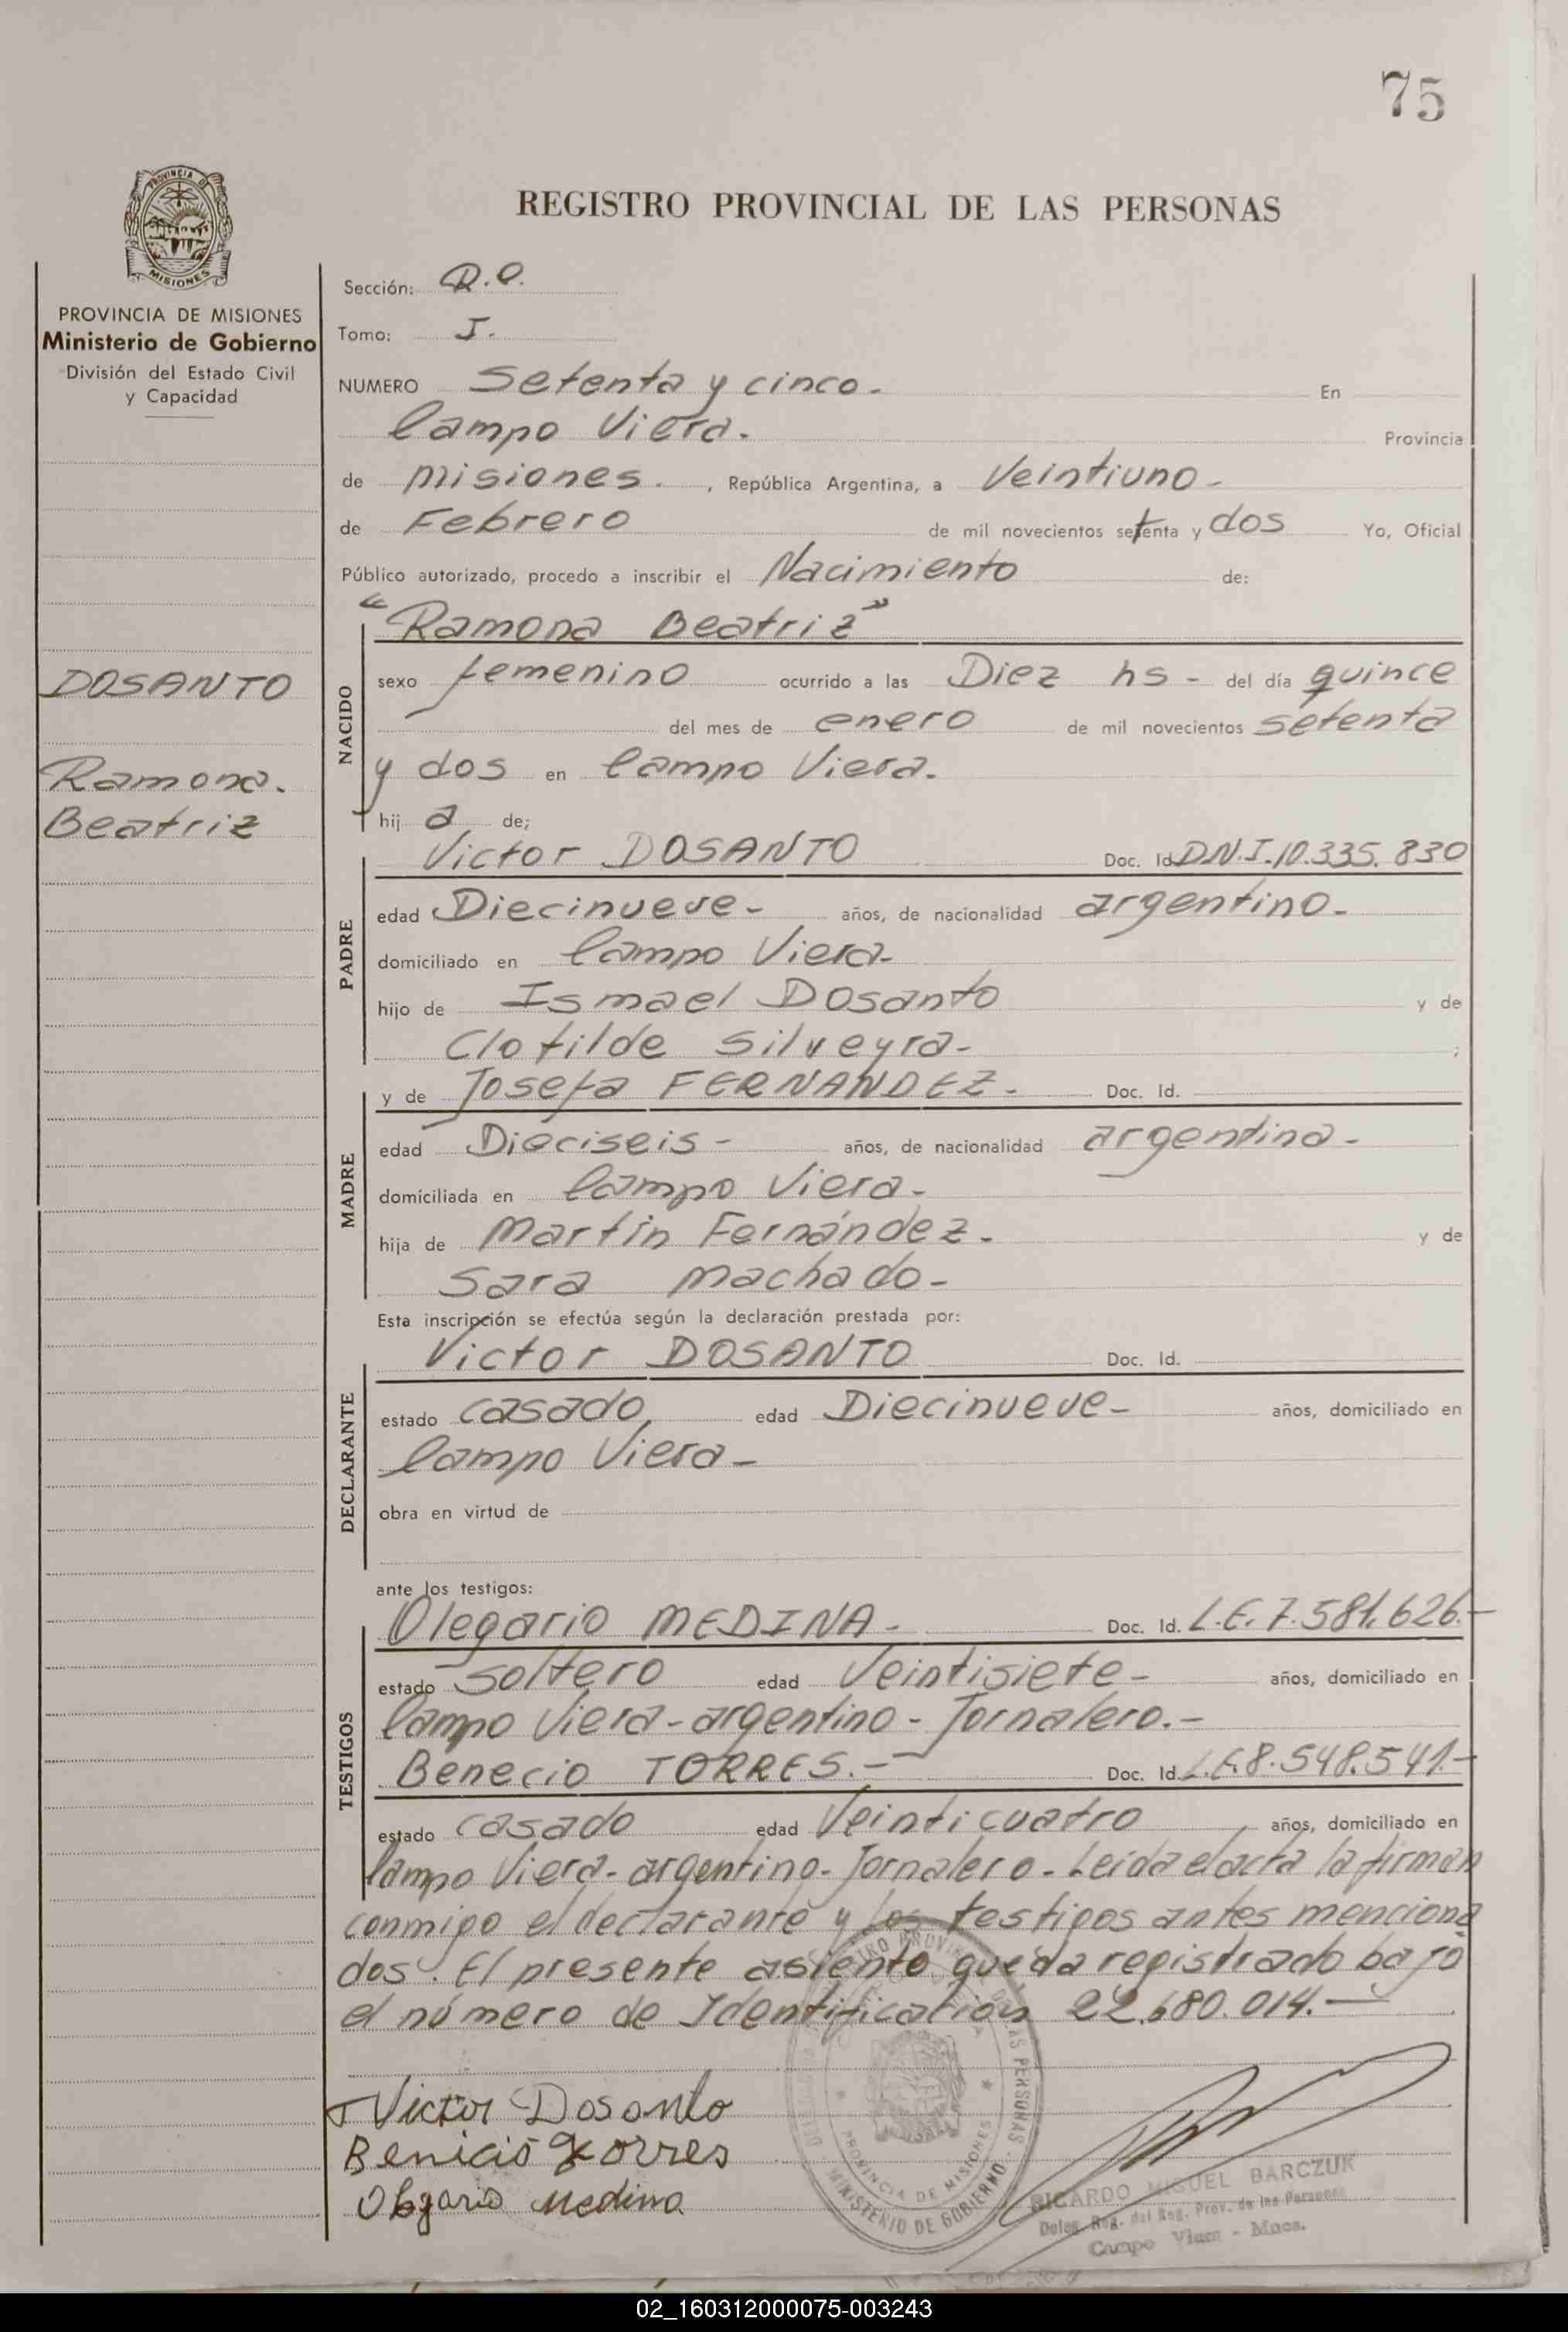 75
PROVINCIA DE
MISIONES
REGISTRO PROVINCIAL DE LAS PERSONAS
PROVINCIA DE MISIONES
Ministerio de Gobierno
División del Estado Civil
y Capacidad
DOSANTO
Ramona.
Beatriz
Sección:
Tomo: I.
NUMERO Setenta y cinco. En
Campo Viera. Provincia
de misiones. , República Argentina, a Veintiuno-
de Febrero de mil novecientos setenta y dos Yo, Oficial
Público autorizado, procedo a inscribir el Nacimiento de:
"Ramona Beatriz"
NACIDO
sexo femenino ocurrido a las Diez hs- del día quince
del mes de enero de mil novecientos setenta
y dos en Campo Viera.
hij a de;
Victor DOSANTO Doc. Id D.N.I.10.335.830
PADRE
edad Diecinueve- años, de nacionalidad argentino-
domiciliado en Campo Viera-
hijo de Ismael Dosanto y de
Clotilde Silveyra- ;
y de Josefa FERNANDEZ- Doc. Id.
MADRE
edad Dieciseis- años, de nacionalidad argentina-
domiciliada en Campo Viera-
hija de Martín Fernández- y de
Sara Machado-
Esta inscripción se efectúa según la declaración prestada por:
Victor DOSANTO Doc. Id.
DECLARANTE
estado casado, edad Diecinueve- años, domiciliado en
Campo Viera-
obra en virtud de
ante los testigos:
Olegario MEDINA- Doc. Id. L.E.7.581.626.-
TESTIGOS
estado Soltero edad Veintisiete- años, domiciliado en
Campo Viera-argentino-Jornalero.-
Benecio TORRES.- Doc. Id. L.E.8.548.541.-
estado casado edad Veinticuatro años, domiciliado en
Campo Viera-argentino-Jornalero-Leida el acta la firman
conmigo el declarante y los testigos antes menciona
dos. El presente asiento queda registrado bajo
el número de Identificación 22.680.014.-
Victor Dosanto
Benicio Torres
Olegario Medina
PROVINCIA DE MISIONES
MINISTERIO DE GOBIERNO
RICARDO MIGUEL BARCZUK
Deleg. Reg. del Reg. Prov. de las Personas
Campo Viera - Mnes.
02_160312000075-003243